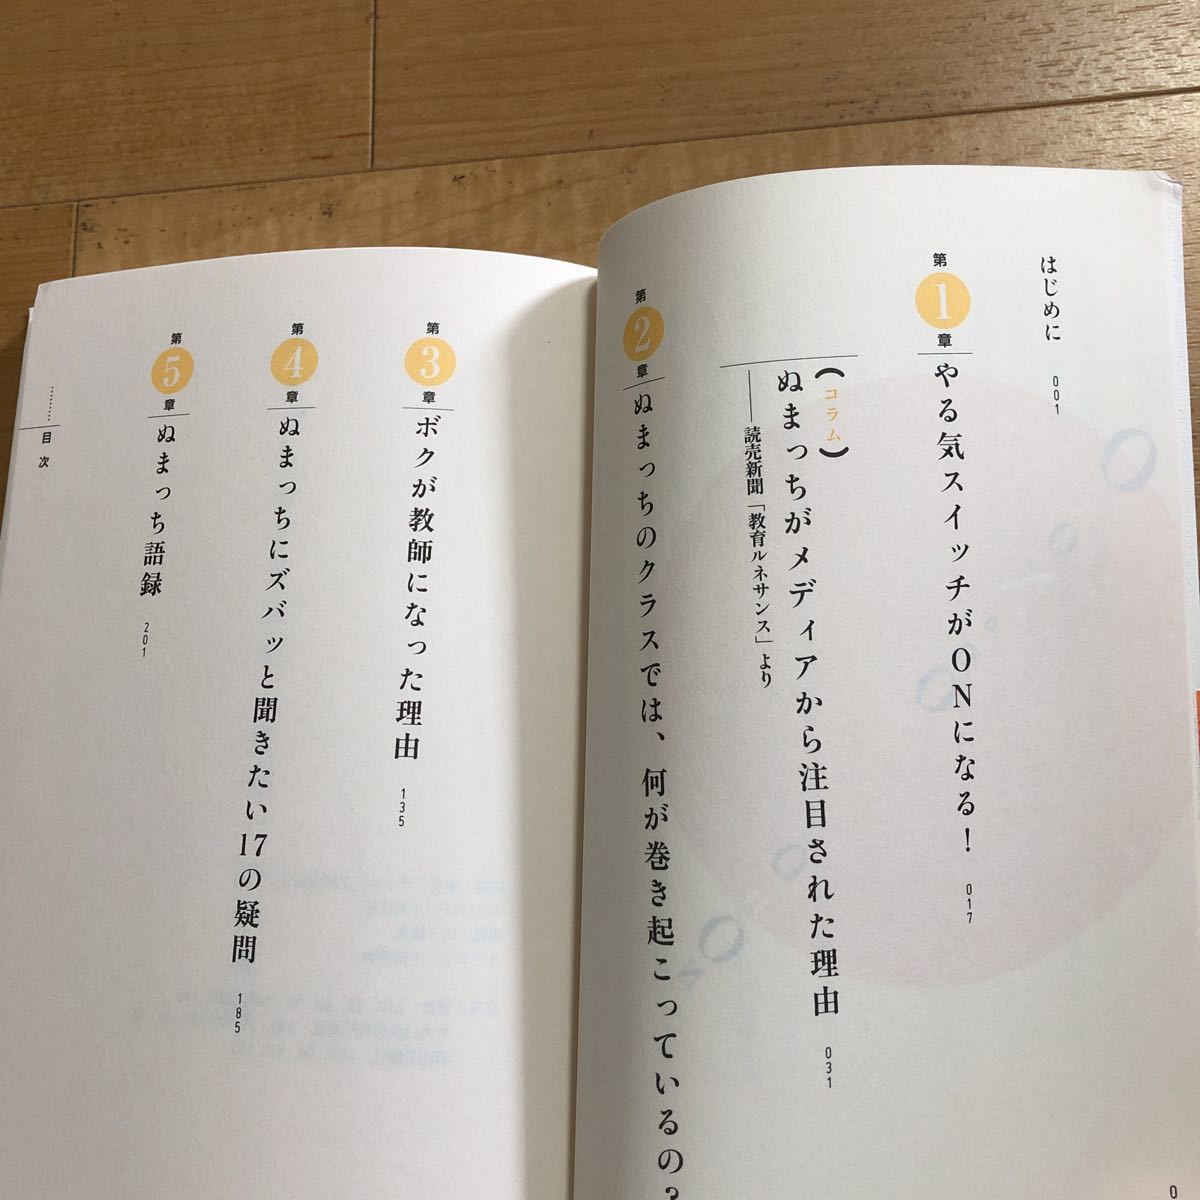 はじめに 001
第1章 やる気スイッチがONになる! 017
(コラム)
ぬまっちがメディアから注目された理由 031
――読売新聞「教育ルネサンス」より
第2章 ぬまっちのクラスでは、何が巻き起こっているの?
0
第3章 ボクが教師になった理由 135
第4章 ぬまっちにズバッと聞きたい17の疑問 185
第5章 ぬまっち語録 201
目次